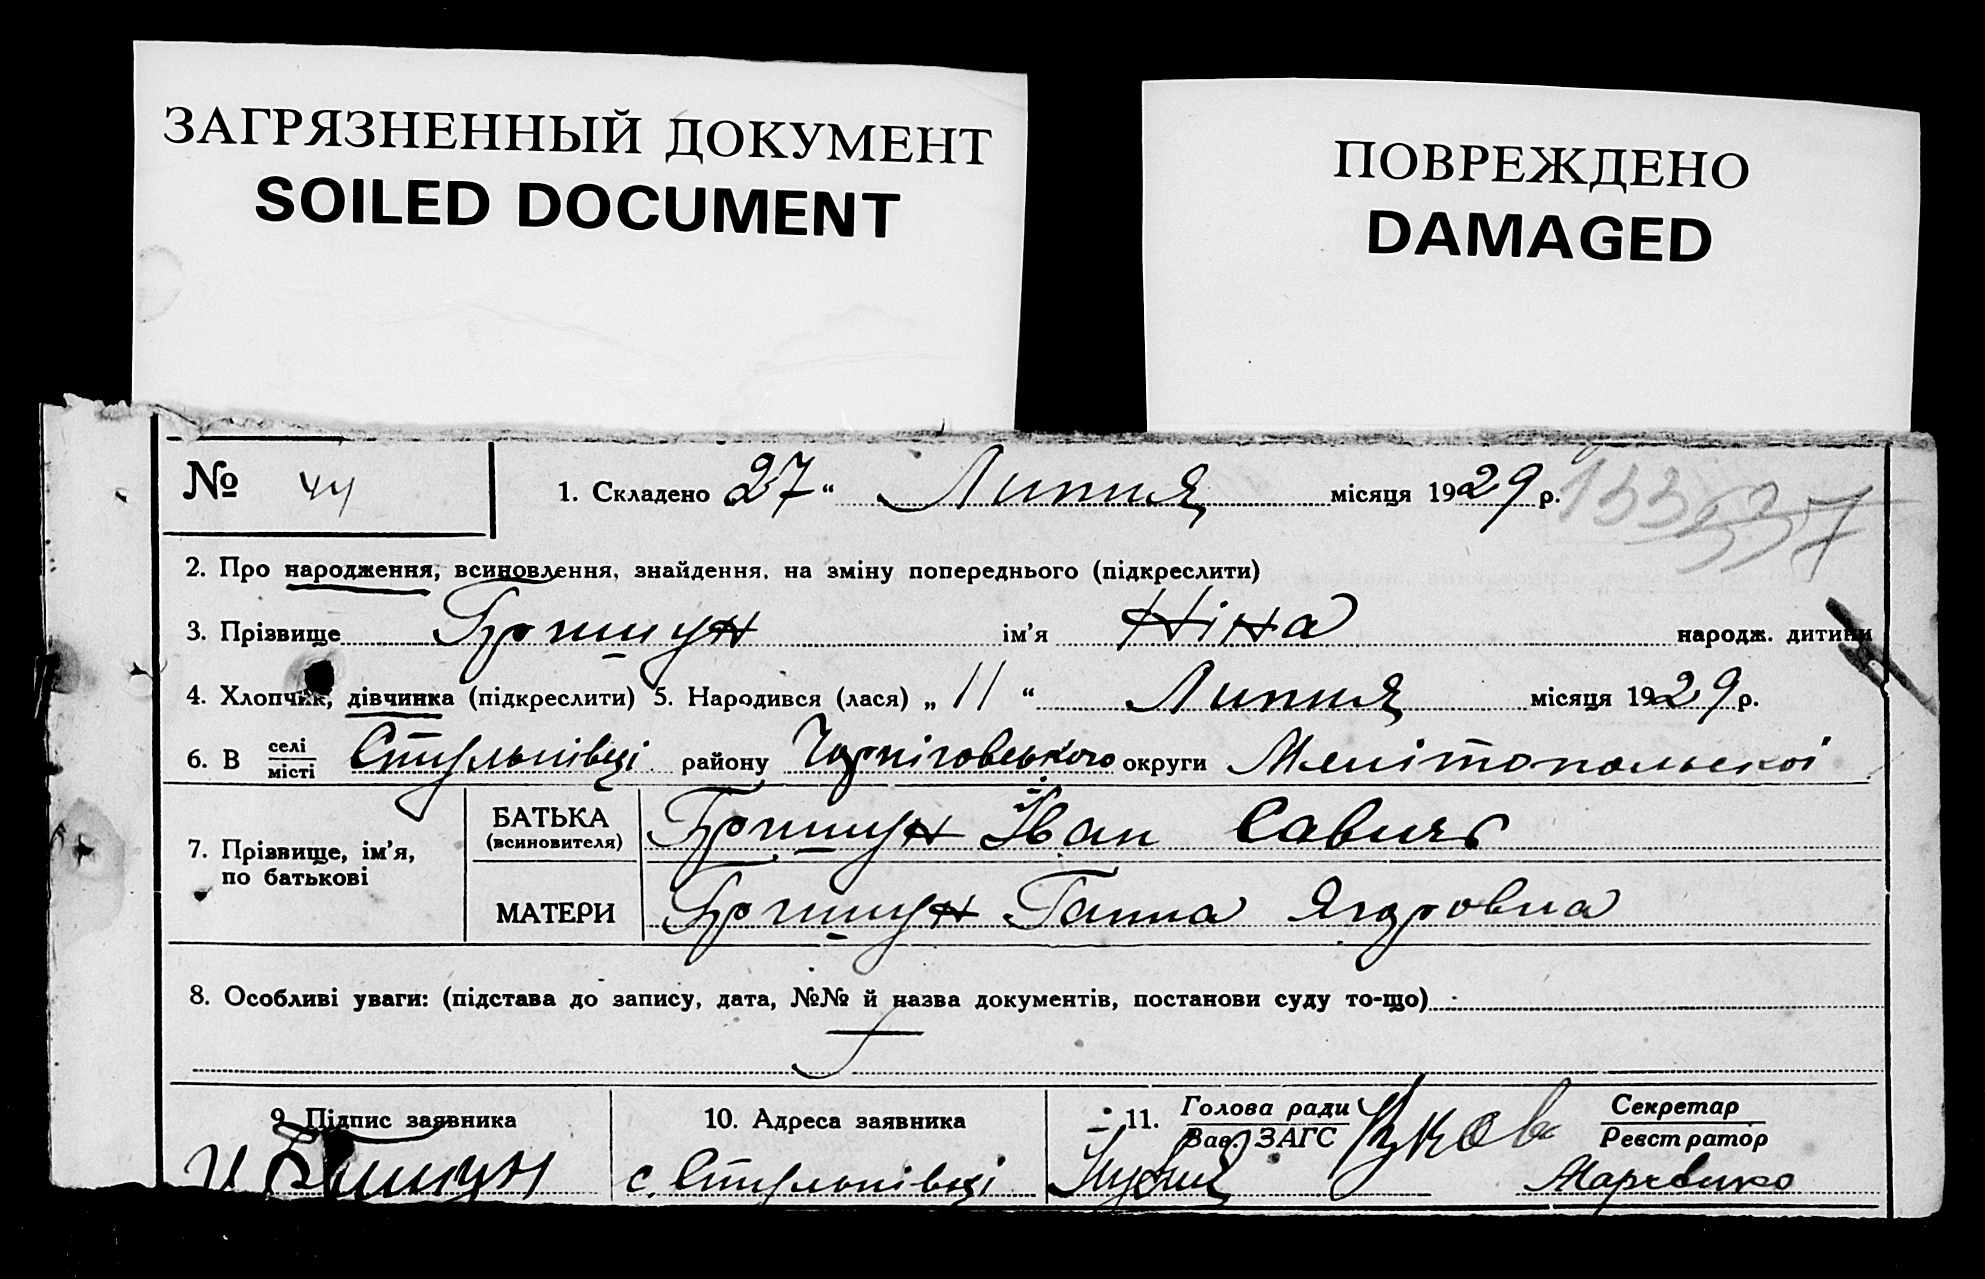 ЗАГРЯЗНЕННЫЙ ДОКУМЕНТ
SOILED DOCUMENT
ПОВРЕЖДЕНО
DAMAGED
№ 44
1. Складено 27 “ Липня місяця 1929 р.
2. Про народження, всиновлення, знайдення, на зміну попереднього (підкреслити)
3. Прізвище ім’я Ніна народж. дитини
4. Хлопчик, дівчинка (підкреслити) 5. Народився (лася) „ 11 “ Липня місяця 1929 р.
6. В селі місті Стульнівці району Черніговського округи Мелітопольскоі
7. Прізвище, ім’я, по батькові
БАТЬКА (всиновителя) Іван
МАТЕРИ Ганна
8. Особливі уваги: (підстава до запису, дата, №№ й назва документів, постанови суду то-що)
9. Підпис заявника
10. Адреса заявника
с. Стульнівці
11. Голова ради Зав. ЗАГС
Секретар Реєстратор